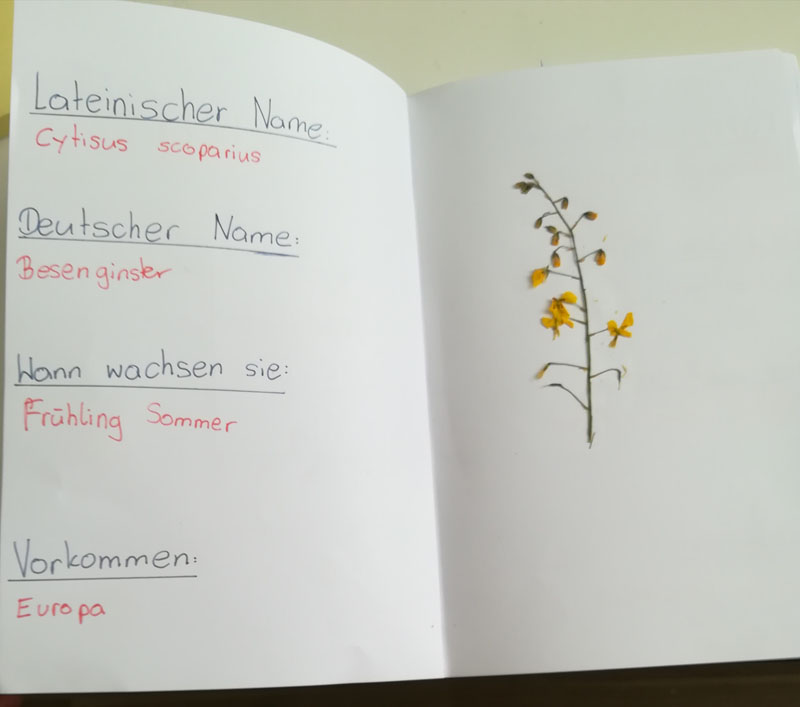 Lateinischer Name:
Cytisus scoparius
Deutscher Name:
Besenginster
Wann wachsen sie:
Frühling Sommer
Vorkommen:
Europa